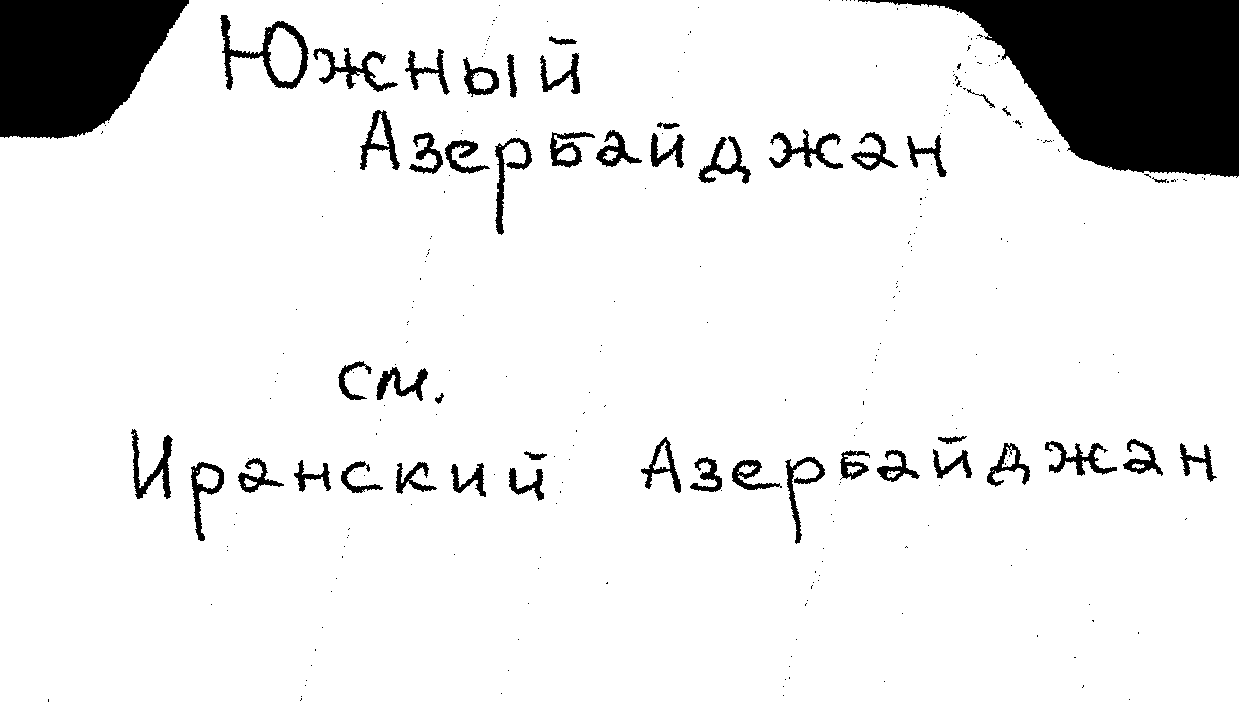 Южный
Азербайджан
см.
Иранский Азербайджан